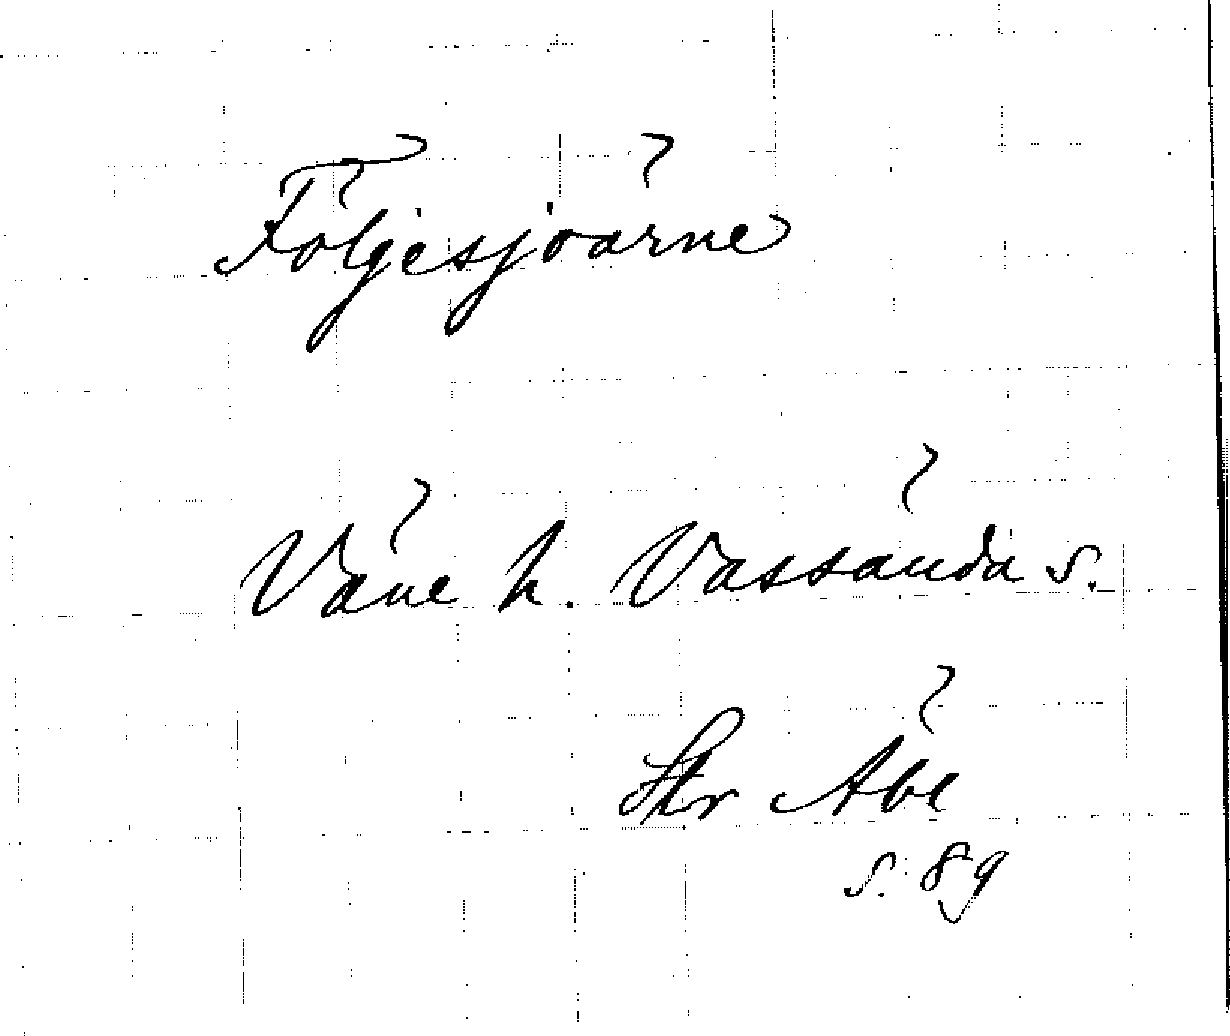 Fölgesjöarne
Väne h. Vassända s.
Str Åbe
s. 89